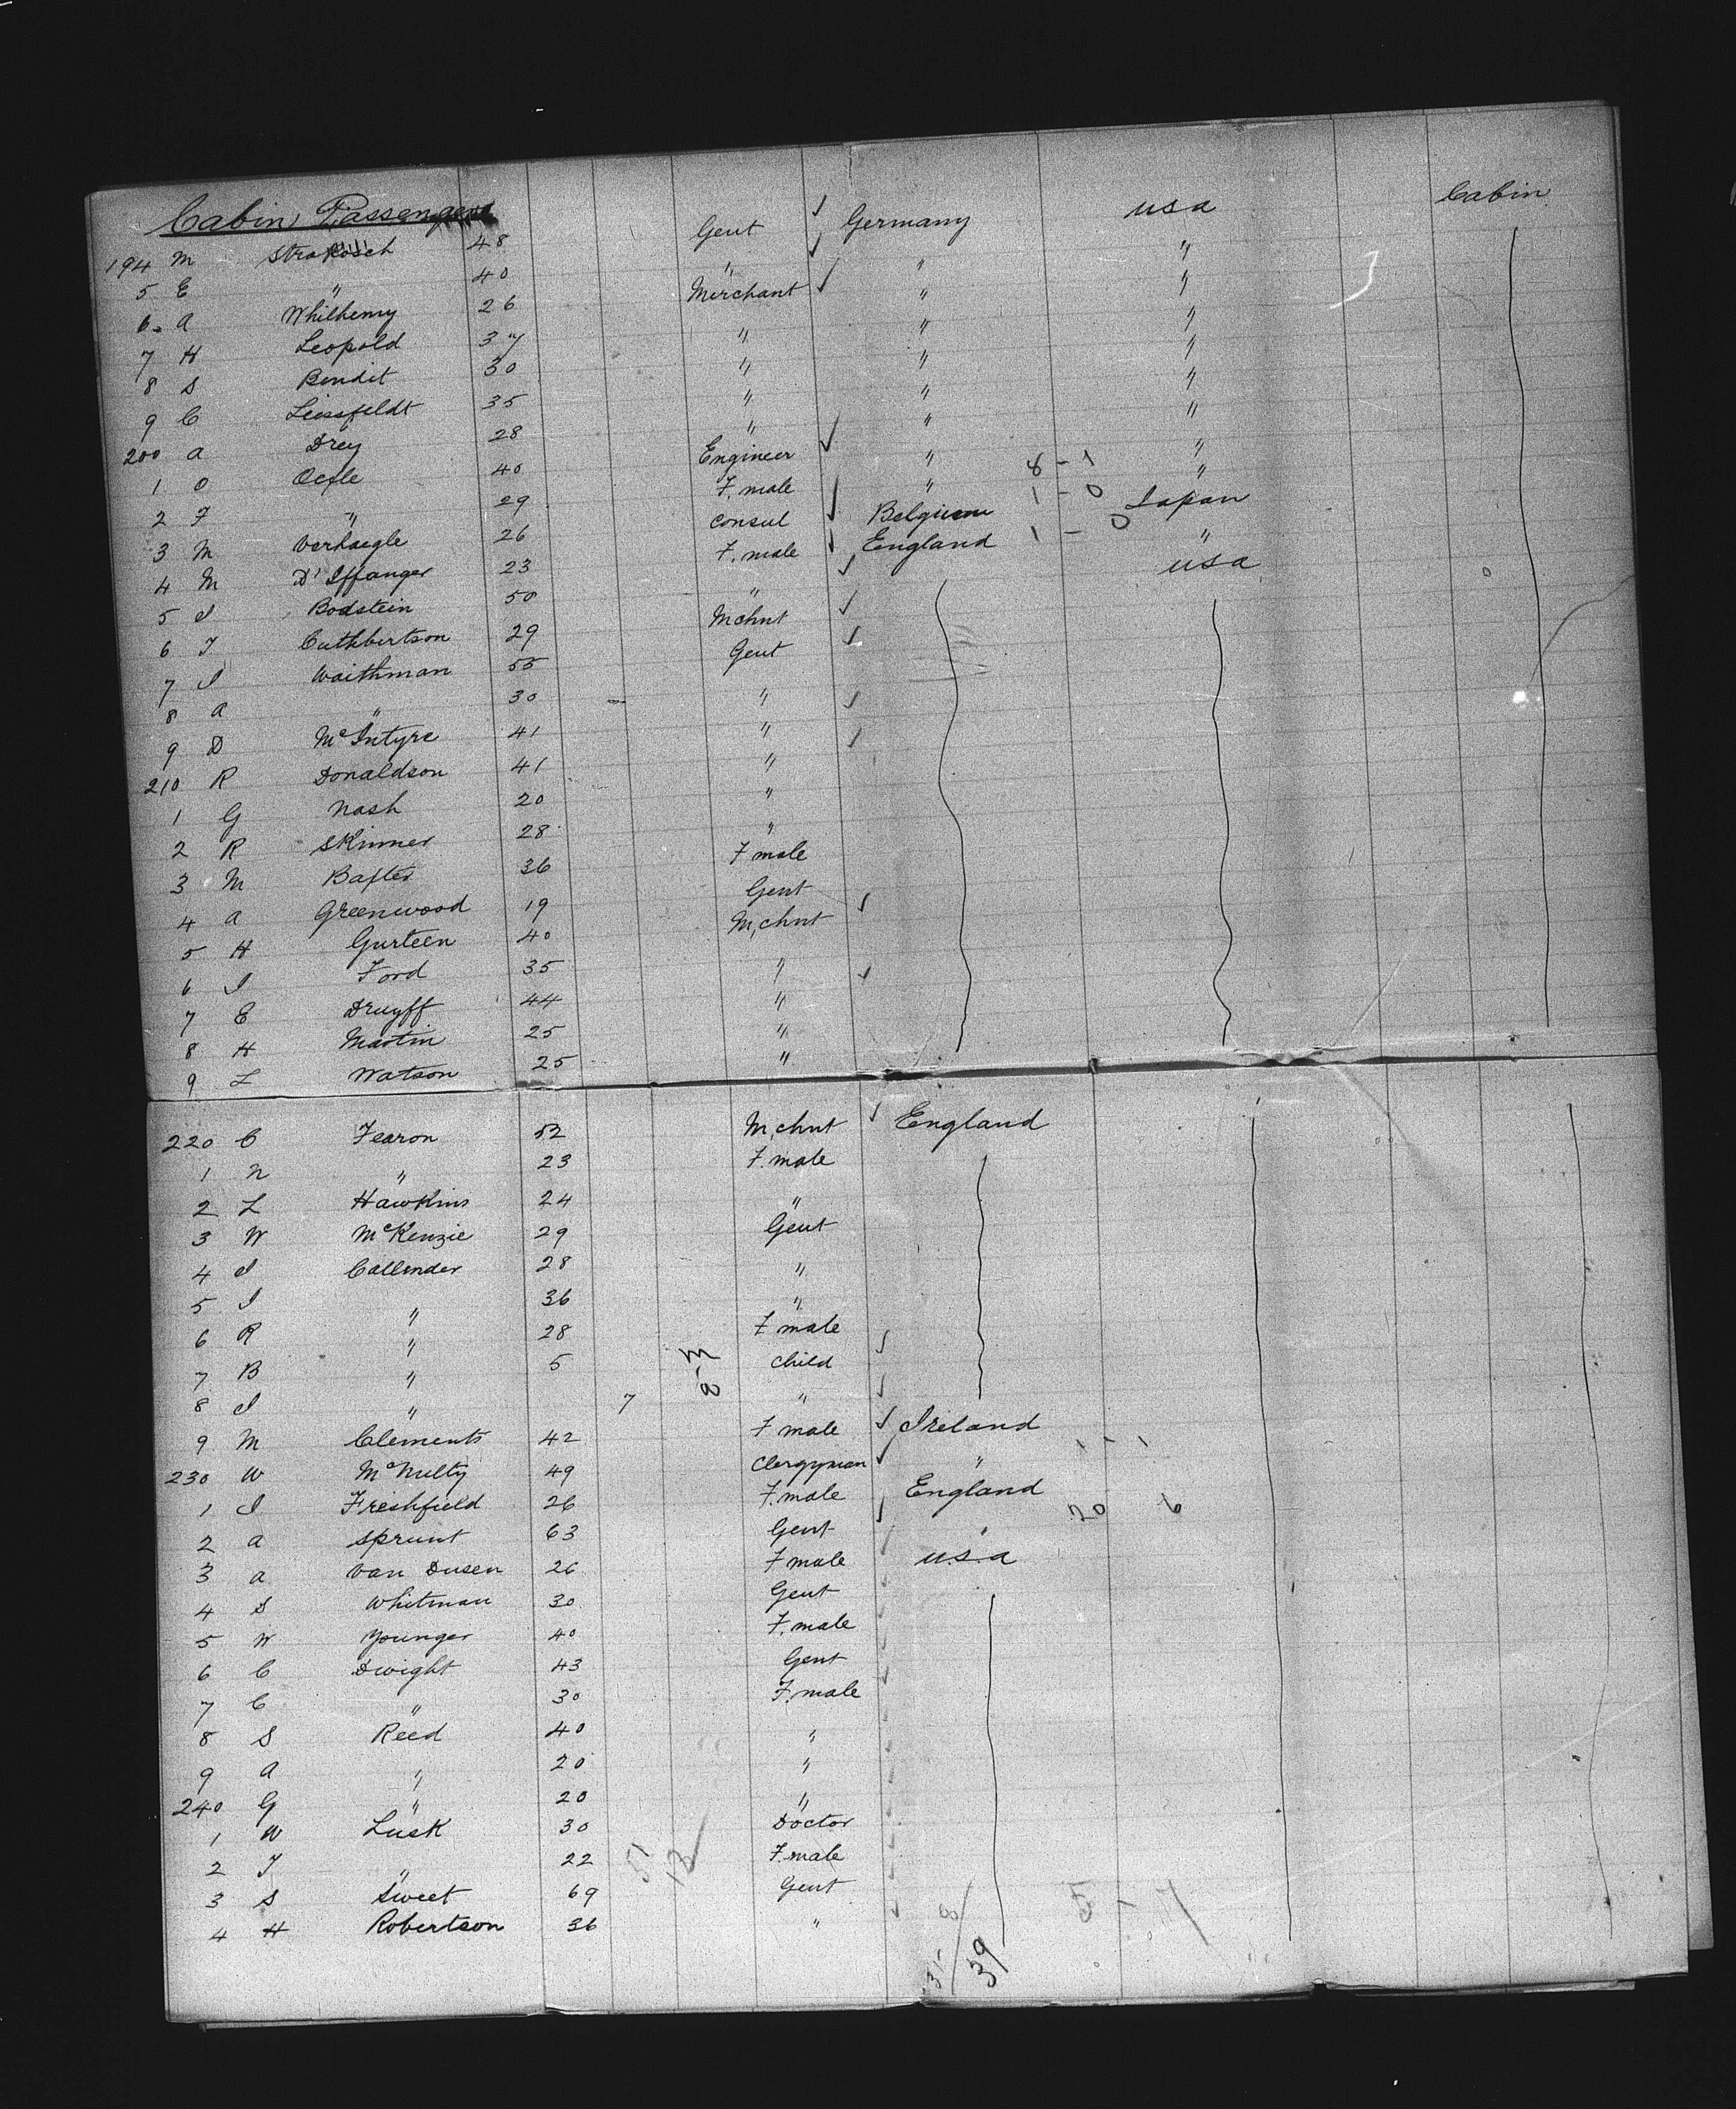 Cabin Passengers
194 M Strakosch 48 Gent ✓ Germany USA Cabin
5 E " 40 " ✓ " "
6 A Whilhemy 26 Merchant ✓ " "
7 H Leopold 37 " " "
8 S Bendit 30 " " "
9 C Leissfeldt 35 " " "
200 A Drey 28 " " "
1 O Oefle 40 Engineer ✓ " 8 - 1 "
2 F " 29 F. male " 1 - 0 "
3 M Verhaegle 26 Consul ✓ Belgium 1 - 0 Japan
4 M D' Iffanger 23 F. male ✓ England "
5 J Bodstein 50 " ✓ USA
6 T Cuthbertson 29 Mchnt ✓
7 J Waithman 55 Gent ✓
8 A " 30 " ✓
9 D McIntyre 41 " ✓
210 R Donaldson 41 "
1 G Nash 20 "
2 R Skinner 28 "
3 M Baxter 36 F male
4 A Greenwood 19 Gent ✓
5 H Gurteen 40 M,chnt
6 J Ford 35 " ✓
7 E Druyff 44 "
8 H Martin 25 "
9 L Watson 25 "
220 C Fearon 52 M,chnt ✓ England
1 N " 23 F. male
2 L Hawkins 24 "
3 W McKenzie 29 Gent
4 J Callender 28 "
5 J " 36 "
6 R " 28 F male
7 B " 5 Child ✓
8 J " 7 " ✓
9 M Clements 42 F male ✓ Ireland 1 - 1
230 W McNulty 49 Clergyman ✓ "
1 J Freshfield 26 F. male England 20 6
2 A Sprunt 63 Gent ✓ "
3 A Van Dusen 26 F male U.S.A
4 S Whitman 30 Gent
5 W Younger 40 F. male
6 C Dwight 43 Gent
7 C " 30 F. male
8 S Reed 40 "
9 A " 20 "
240 G " 20 "
1 W Lusk 30 Doctor
2 J " 22 F. male
3 S Sweet 69 Gent 5 - 7
4 H Robertson 36 "
39